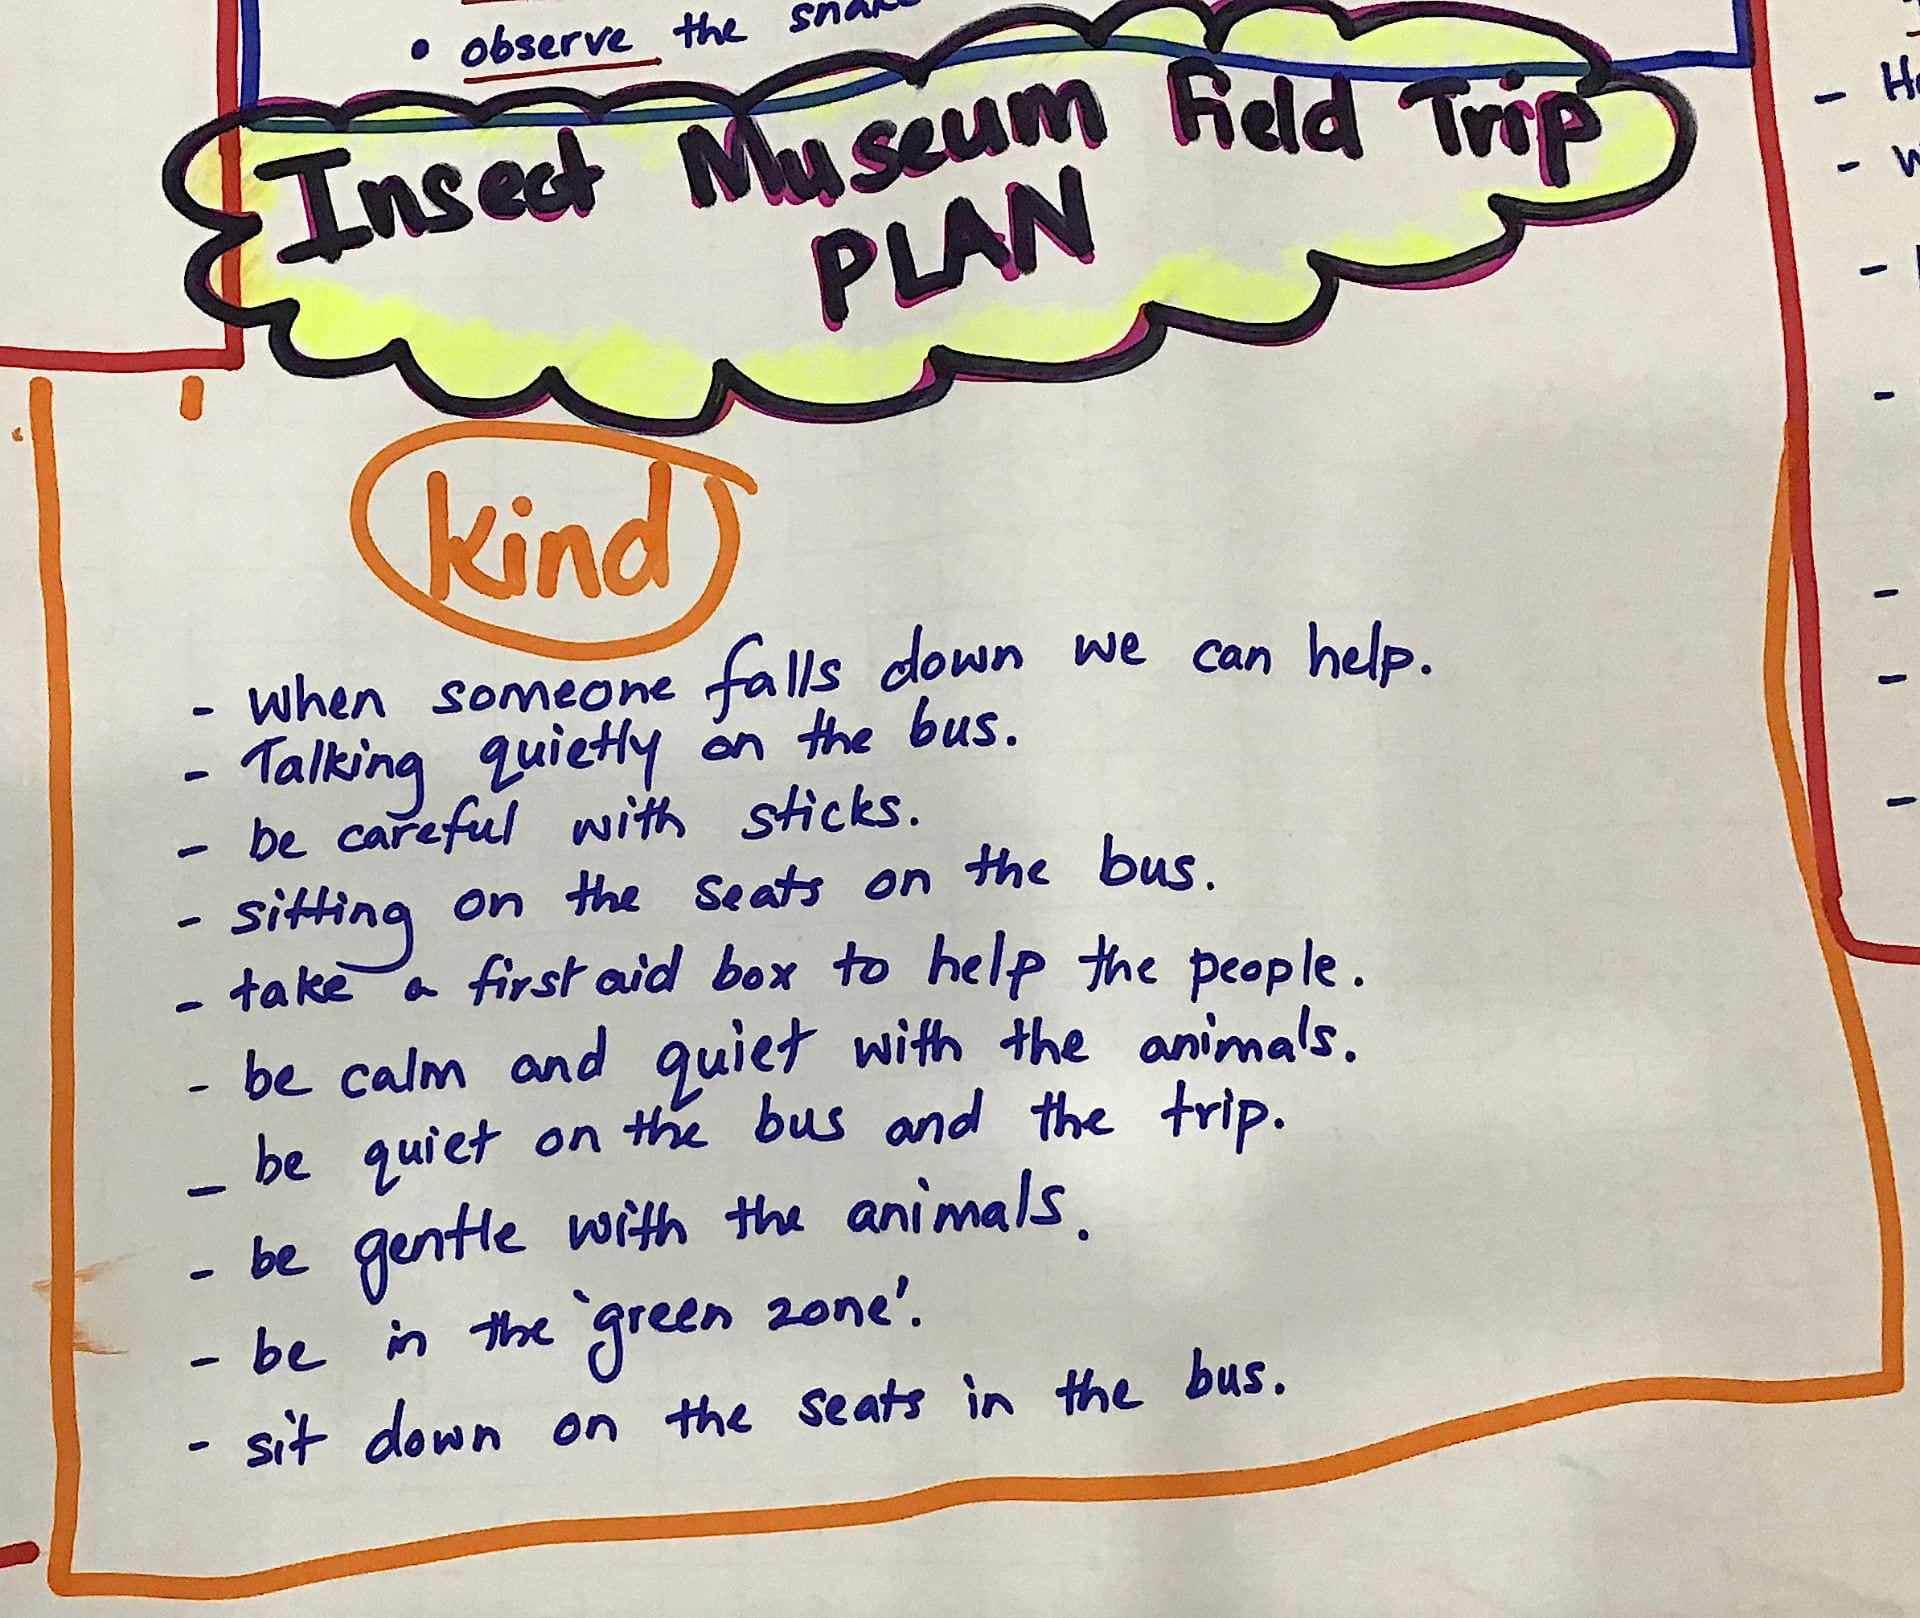 • observe the snake
Insect Museum Field Trip
PLAN
kind
- when someone falls down we can help.
- Talking quietly on the bus.
- be careful with sticks.
- sitting on the seats on the bus.
- take a first aid box to help the people.
- be calm and quiet with the animals.
- be quiet on the bus and the trip.
- be gentle with the animals.
- be in the 'green zone'.
- sit down on the seats in the bus.